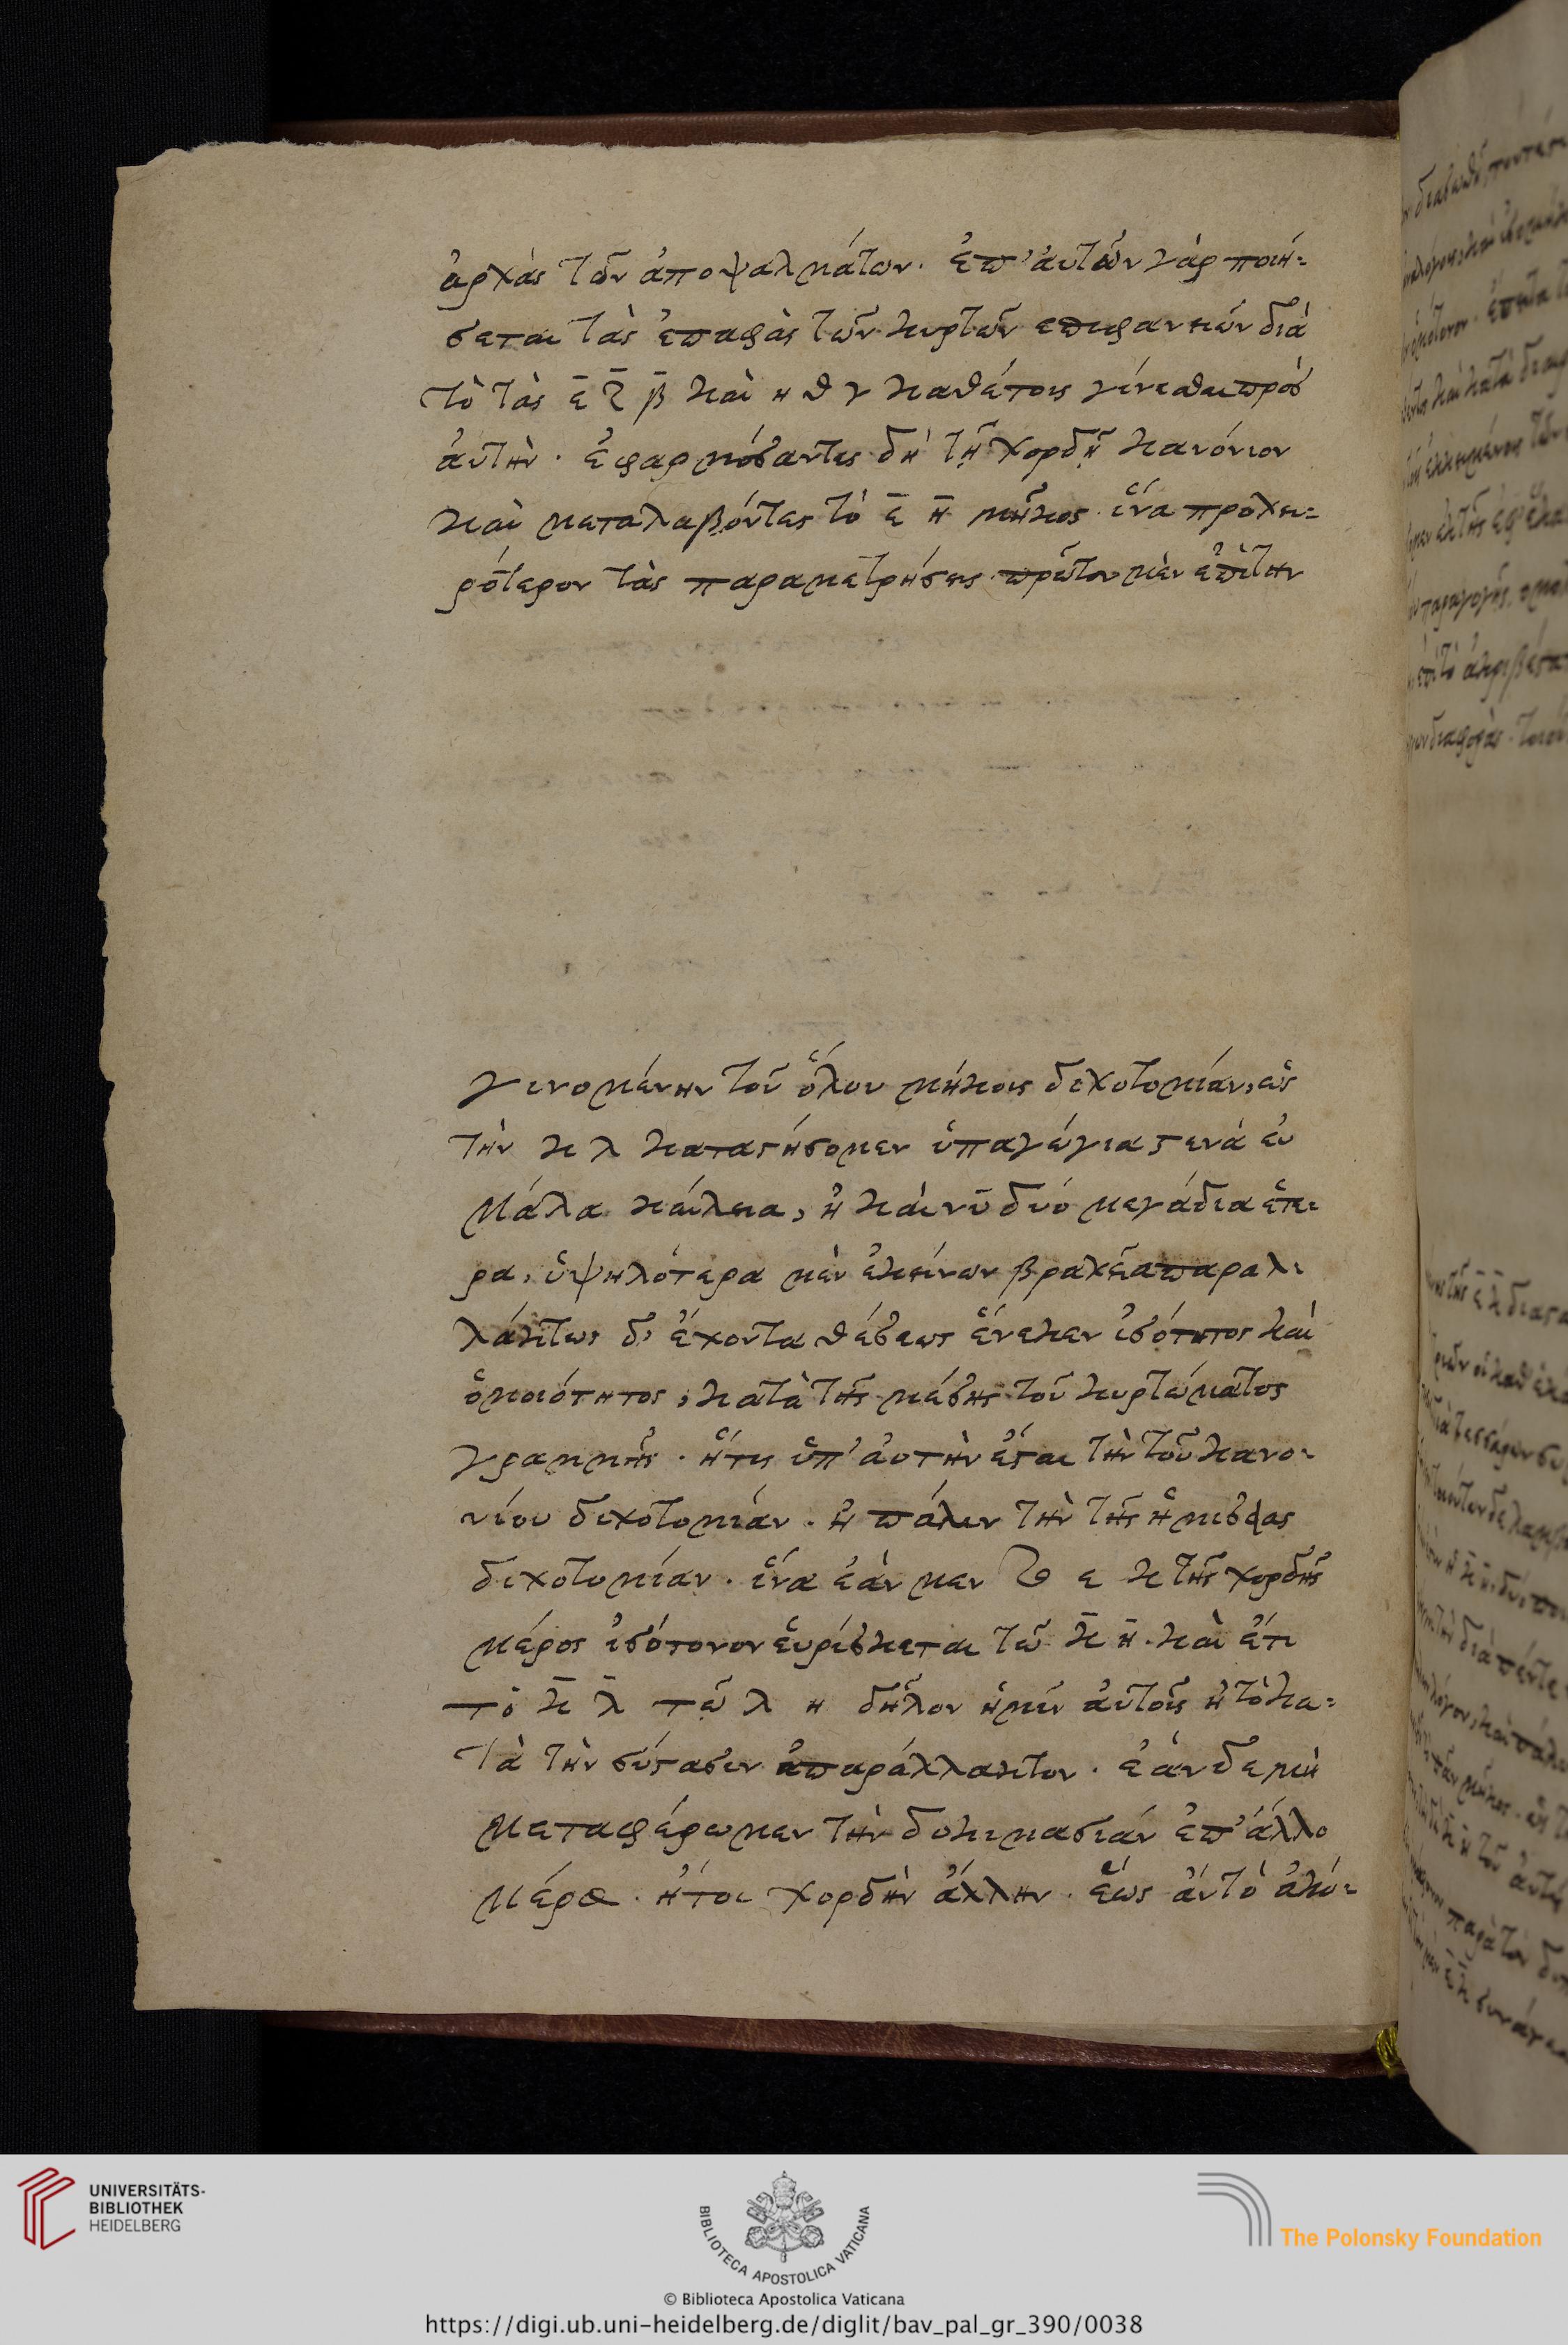 ἀρχὰς τῶν ἀποψαλμάτων. ἐπ' ἀυτῶν γὰρ ποιή-
σεται τὰς ἐπαφὰς τῶν κυρτῶν επιφανιῶν διὰ
τὸ τὰς ε̄ ζ̄ β̄ καὶ η θ γ καθέτους γίνεσθαι πρὸς
ἀυτὴν. ἐφαρμόσαντες δὴ τῇ χορδῇ κανόνιον
καὶ μεταλαβόντες τὸ ε̄ η̄ μῆκος ἵνα προχει-
ρότερον τὰς παραμετρήσεις πρῶτον μὲν ἐπὶ τὴν
γινομένην τοῦ ὅλου μήκους διχοτομίαν, ὡς
τὴν κ λ καταστήσομεν ὑπαγώγια στενὰ ευ
μάλα κοίλεια, ἢ καὶ νῦ δυό μαγάδια ἕτε-
ρα, ὑψηλότερα μὲν ἐκείνων βραχεῖ ἀπαραλ-
λάκτως δ' ἔχοντα θέσεως ἕνεκεν ἰσότητος καὶ
ὁμοιότητος, κατὰ τῆς μέσης τοῦ κυρτώματος
γραμμῆς. ἥτις ὑπ' ἀυτὴν ἔσται τὴν τοῦ κανο-
νίου διχοτομίαν. ἢ πάλιν τὴν τῆς ἡμισείας
διχοτομίαν. ἵνα ἐὰν μεν τὸ ε κ τῆς χορδῆς
μέρος ἰσότονον ἑυρίσκεται τῶ κ̄ η̄. καὶ ἔτι
τὸ κ̄ λ̄ τῷ λ η δῆλον ἡμῖν ἀυτοῖς ᾖ τὸ κα-
τὰ τὴν σύστασιν ἀπαράλλακτον. ἐὰν δε μὴ
μεταφέρωμεν τὴν δοκιμασίαν ἐπ' ἄλλο
μέρος. ἤτοι χορδὴν ἄλλην. ἕως ἂν τὸ ἀκό-
UNIVERSITÄTS-
BIBLIOTHEK
HEIDELBERG
BIBLIOTECA APOSTOLICA VATICANA
The Polonsky Foundation
© Biblioteca Apostolica Vaticana
https://digi.ub.uni-heidelberg.de/diglit/bav_pal_gr_390/0038